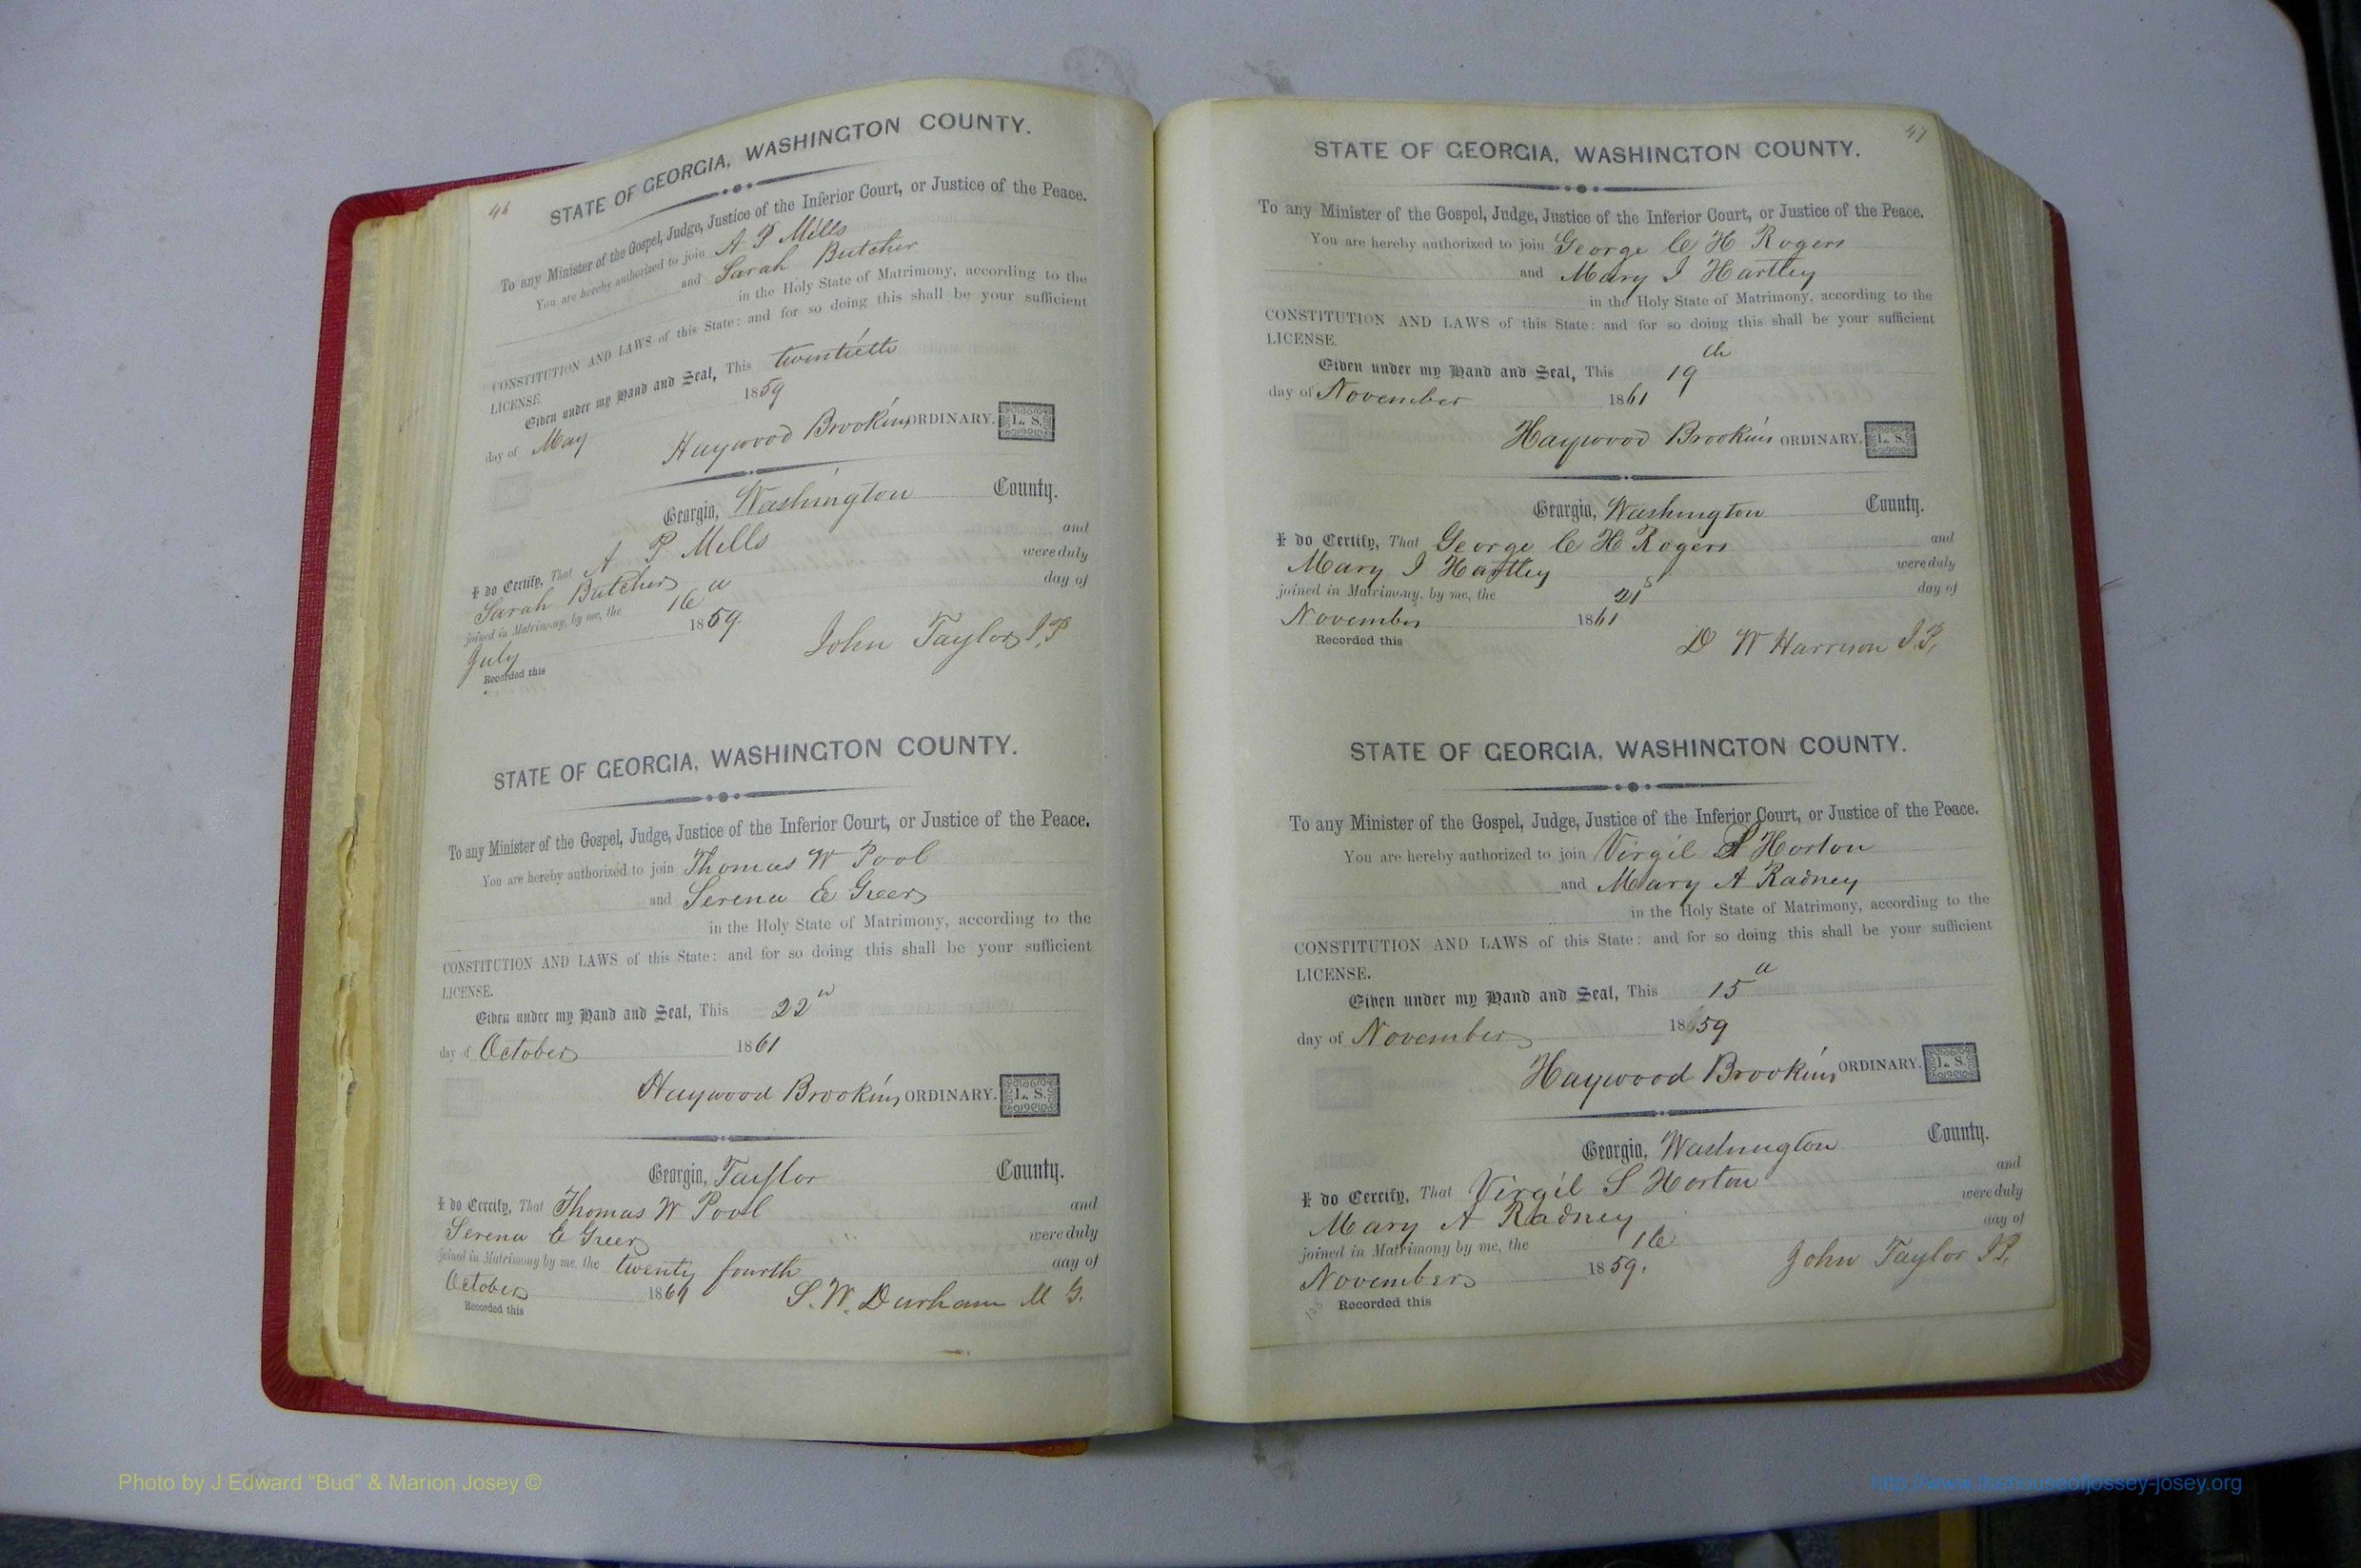 46
STATE OF GEORGIA, WASHINGTON COUNTY.
To any Minister of the Gospel, Judge, Justice of the Inferior Court, or Justice of the Peace.
You are hereby authorized to join A P Mills
and Sarah Butcher
in the Holy State of Matrimony, according to the
CONSTITUTION AND LAWS of this State: and for so doing this shall be your sufficient
LICENSE
Given under my Hand and Seal, This twentieth
day of May 1859
Haywood Brookins ORDINARY. L. S.
Georgia, Washington County.
I do Certify, That A P Mills and
Sarah Butcher were duly
joined in Matrimony, by me, the 16 day of
July 1859
John Taylor J.P
Recorded this
STATE OF GEORGIA, WASHINGTON COUNTY.
To any Minister of the Gospel, Judge, Justice of the Inferior Court, or Justice of the Peace.
You are hereby authorized to join Thomas W Pool
and Serena E Greer
in the Holy State of Matrimony, according to the
CONSTITUTION AND LAWS of this State: and for so doing this shall be your sufficient
LICENSE.
Given under my Hand and Seal, This 22
day of October 1861
Haywood Brookins ORDINARY. L. S.
Georgia, Taylor County.
I do Certify, That Thomas W Pool and
Serena E Greer were duly
joined in Matrimony by me, the twenty fourth day of
October 1861 S. W. Durham M G.
Recorded this
47
STATE OF GEORGIA, WASHINGTON COUNTY.
To any Minister of the Gospel, Judge, Justice of the Inferior Court, or Justice of the Peace.
You are hereby authorized to join George C H Rogers
and Mary J Hartley
in the Holy State of Matrimony, according to the
CONSTITUTION AND LAWS of this State: and for so doing this shall be your sufficient
LICENSE.
Given under my Hand and Seal, This 19th
day of November 1861
Haywood Brookins ORDINARY. L. S.
Georgia, Washington County.
I do Certify, That George C H Rogers and
Mary J Hartley were duly
joined in Matrimony, by me, the 21 day of
November 1861
Recorded this D W Harrison J.P.
STATE OF GEORGIA, WASHINGTON COUNTY.
To any Minister of the Gospel, Judge, Justice of the Inferior Court, or Justice of the Peace.
You are hereby authorized to join Virgil S Horton
and Mary A Radney
in the Holy State of Matrimony, according to the
CONSTITUTION AND LAWS of this State: and for so doing this shall be your sufficient
LICENSE.
Given under my Hand and Seal, This 15
day of November 1859
Haywood Brookins ORDINARY. L. S.
Georgia, Washington County.
I do Certify, That Virgil S Horton and
Mary A Radney were duly
joined in Matrimony by me, the 16 day of
November 1859. John Taylor J.P.
Recorded this
Photo by J Edward “Bud” & Marion Josey ©
http://www.thehouseofjossey-josey.org